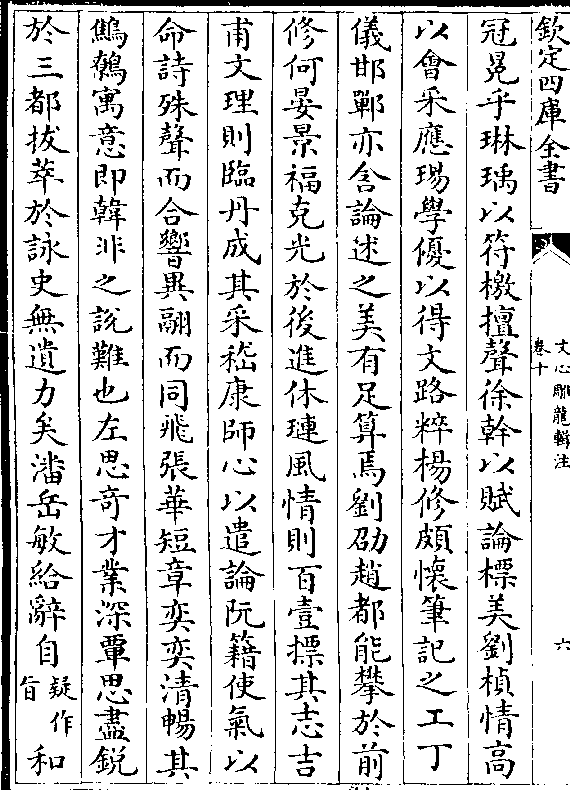 欽定四庫全書
文心雕龍輯注
卷十
六
冠冕乎琳瑀以符檄擅聲徐幹以賦論標美劉楨情高
以會采應瑒學優以得文路粹楊修頗懷筆記之工丁
儀邯鄲亦含論述之美有足算焉劉劭趙都能攀於前
修何晏景福克光於後進休璉風情則百壹摽其志吉
甫文理則臨丹成其采嵇康師心以遣論阮籍使氣以
命詩殊聲而合響異翮而同飛張華短章奕奕清暢其
鷦鷯寓意即韓非之説難也左思奇才業深覃思盡鋭
於三都拔萃於詠史無遺力矣潘岳敏給辭自疑作旨和